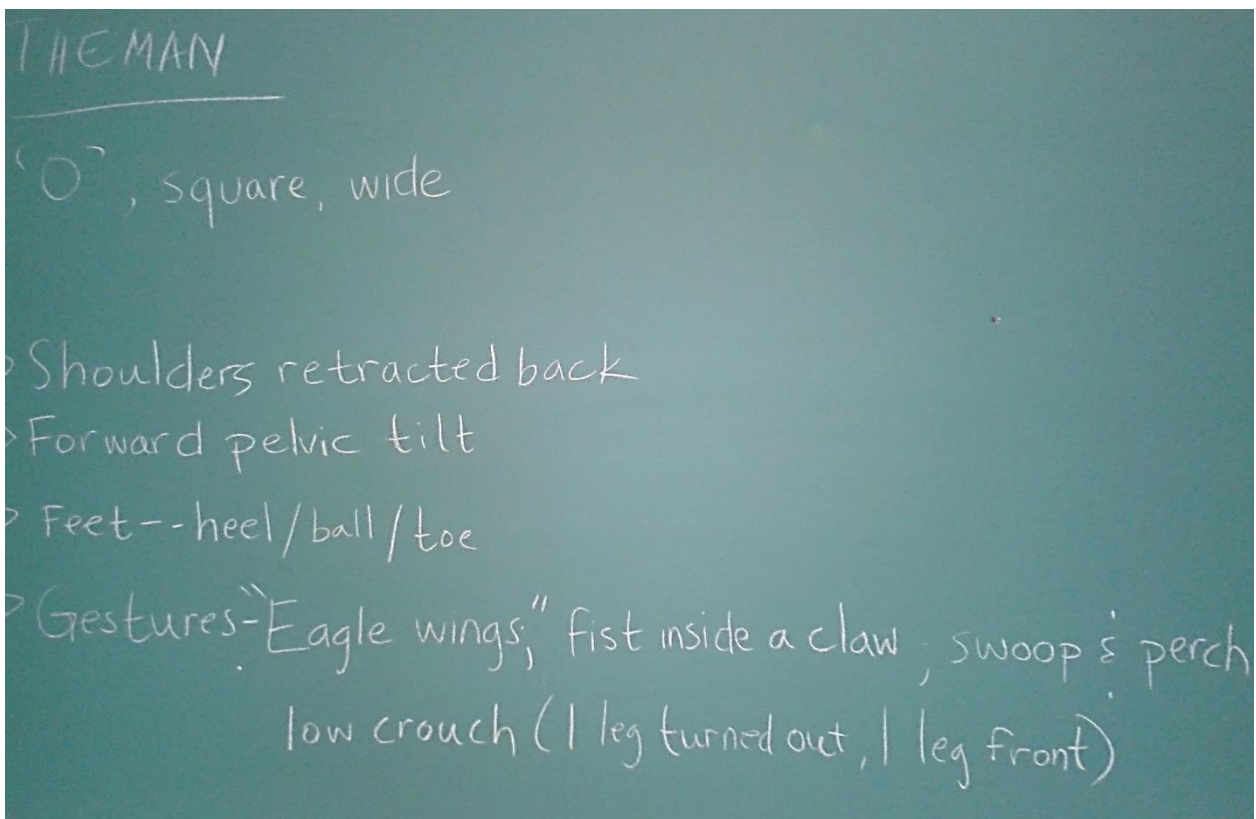 THE MAN
"O", square, wide
> Shoulders retracted back
> Forward pelvic tilt
> Feet--heel/ball/toe
> Gestures-"Eagle wings;" fist inside a claw ; swoop & perch
low crouch (1 leg turned out, 1 leg front)